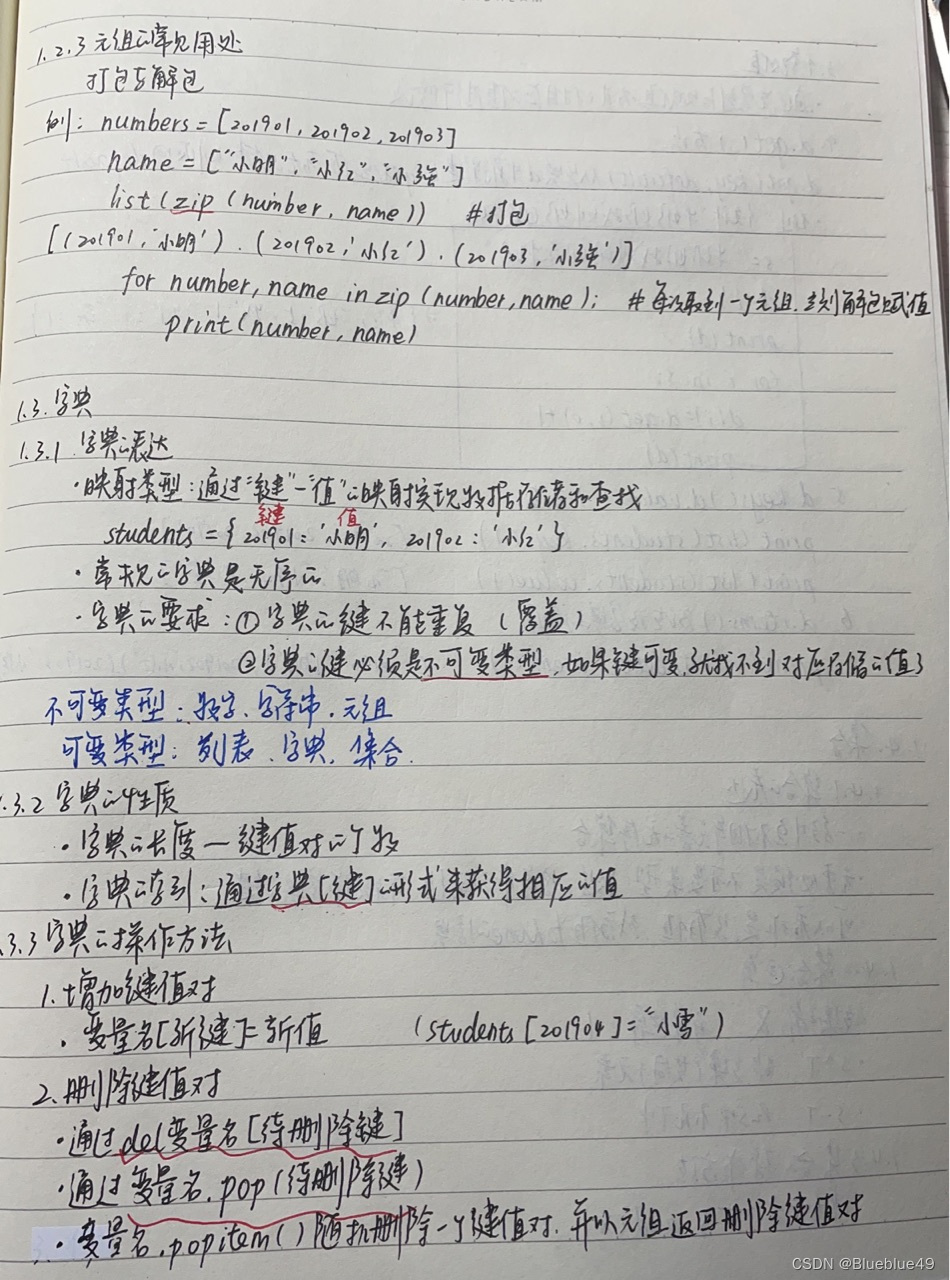 1.2.3 元组的常见用处
打包与解包
例: numbers = [201901, 201902, 201903]
name = ["小明", "小红", "小强"]
list (zip (number, name)) #打包
[(201901, '小明'). (201902, '小红'). (201903, '小强')]
for number, name in zip (number, name): #每次取到一个元组, 立刻解包赋值
print (number, name)
1.3. 字典
1.3.1 字典的表达
·映射类型: 通过"键"-"值"的映射实现数据存储和查找
键 值
students = { 201901: '小明', 201902: '小红' }
·常规的字典是无序的
·字典的要求: ①字典的键不能重复 (覆盖)
②字典的键必须是不可变类型, 如果键可变, 就找不到对应存储的值了
不可变类型: 数字、字符串、元组
可变类型: 列表、字典、集合.
.3.2 字典的性质
·字典的长度 — 键值对的个数
·字典的索引: 通过字典[键]的形式来获得相应的值
.3.3 字典的操作方法
1. 增加键值对
·变量名[新键]=新值 (students [201904] = "小雪")
2. 删除键值对
·通过del变量名[待删除键]
·通过变量名.pop(待删除键)
·变量名.popitem() 随机删除一个键值对, 并以元组返回删除键值对
CSDN @Blueblue49